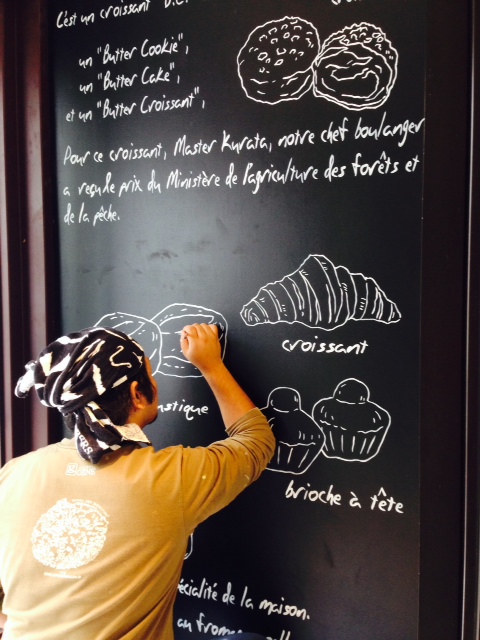 C'est un croissant
un "Butter Cookie",
un "Butter Cake",
et un "Butter Croissant",
Pour ce croissant, Master Kurata, notre chef boulanger
a reçu le prix du Ministère de l'agriculture des forêts et
de la pêche.
croissant
stique
brioche à tête
cialité de la maison.
au from